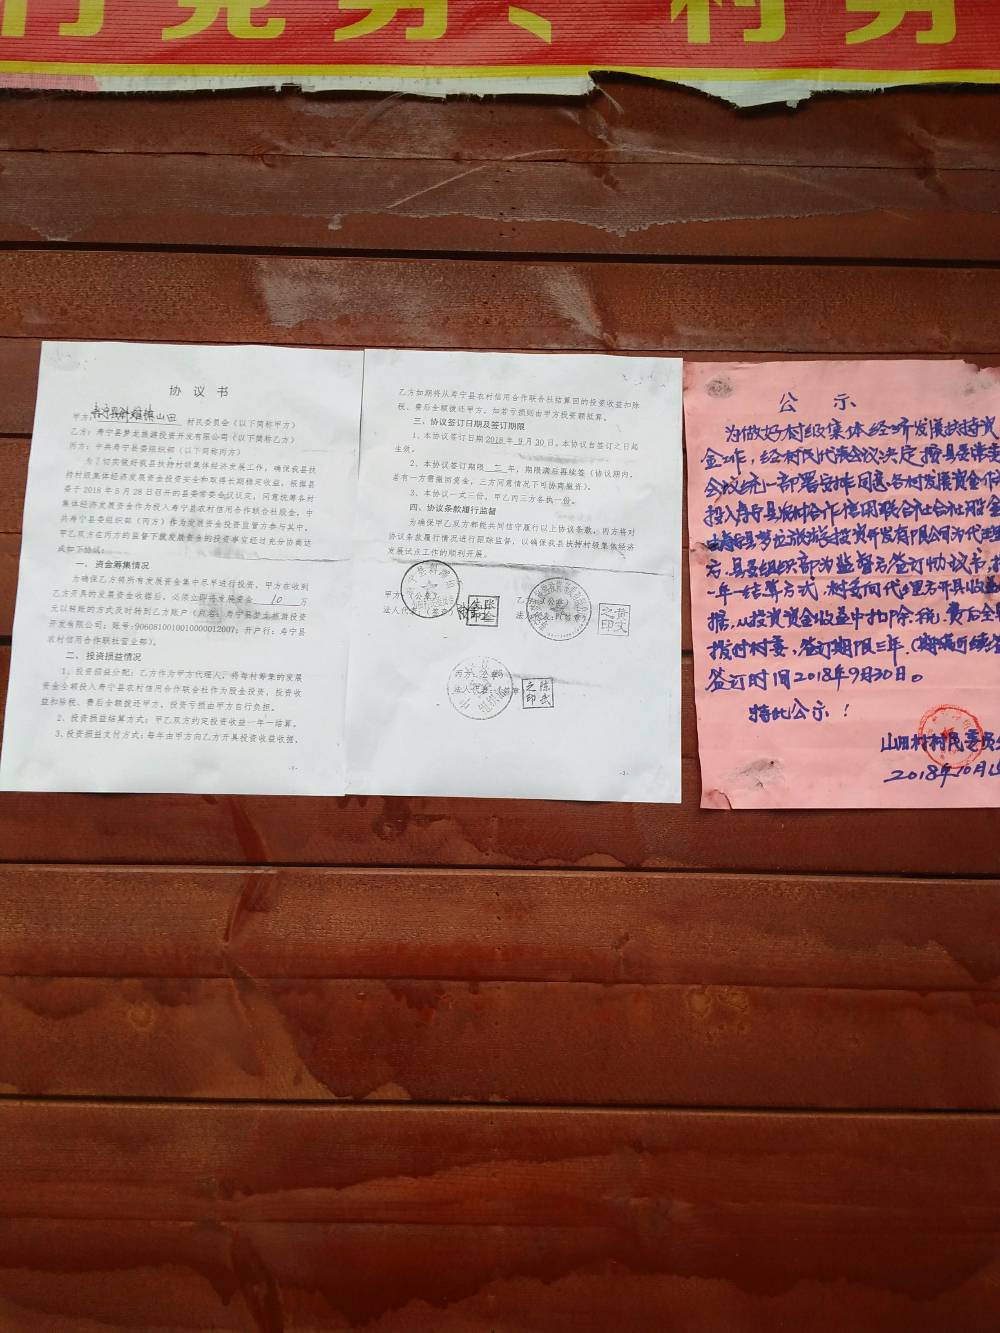 行党务、村务
协 议 书
甲方：寿宁县斜滩镇山田 村民委员会（以下简称甲方）
乙方：寿宁县梦龙旅游投资开发有限公司（以下简称乙方）
丙方：中共寿宁县委组织部（以下简称丙方）
为了切实做好我县扶持村级集体经济发展工作，确保我县扶
持村级集体经济发展资金投资安全和取得长期稳定收益，根据县
委于 2018 年 5 月 28 日召开的县委常委会议议定，同意统筹各村
集体经济发展资金作为投入寿宁县农村信用合作联合社股金，中
共寿宁县委组织部（丙方）作为发展资金投资监督方参与其中。
甲乙双方在丙方的监督下就发展资金的投资事宜经过充分协商达
成如下协议：
一、 资金筹集情况
为确保乙方将所有发展资金集中尽早进行投资，甲方在收到
乙方开具的发展资金收据后，必须立即将发展资金 10 万
元以转账的方式及时转到乙方账户（户名：寿宁县梦龙旅游投资
开发有限公司；账号：9060810010010000012007；开户行：寿宁县
农村信用合作联社营业部）。
二、 投资损益情况
1、投资损益分配：乙方作为甲方代理人，将每村筹集的发展
资金全额投入寿宁县农村信用合作联合社作为股金投资，投资收
益扣除税、费后全额拨还甲方，投资亏损由甲方自行负担。
2、投资损益结算方式：甲乙双方约定投资收益一年一结算。
3、投资损益支付方式：每年由甲方向乙方开具投资收益收据，
乙方如期将从寿宁县农村信用合作联合社结算回的投资收益扣除
税、费后全额拨还甲方，如若亏损则由甲方投资额抵算。
三、协议签订日期及签订期限
1、本协议签订日期 2018 年 9 月 30 日。本协议自签订之日起
生效。
2、本协议签订期限 三 年，期限满后再续签（协议期内，
若有一方需撤回资金，三方同意情况下可协商撤资）。
3、本协议一式三份，甲乙丙三方各执一份。
四、协议条款履行监督
为确保甲乙双方都能共同信守履行以上协议条款，丙方将对
协议条款履行情况进行跟踪监督，以确保我县扶持村级集体经济
发展试点工作的顺利开展。
甲方：（公章） 乙方：（公章）
法人代表：（签章） 法人代表：（签章）
丙方：（公章）
法人代表：（签章）
公 示
为做好村级集体经济发展扶持资
金工作，经村民代表会议决定按县委常委
会议统一部署安排同意各村发展资金作
投入寿宁县农村合作信用联合社合社股金
由寿宁县梦龙旅游投资开发有限公司为代理
方，县委组织部为监督方签订协议书，按
一年一结算方式，村委向代理方开具收益
据，从投资资金收益中扣除税、费后全
拨付村委，签订期限三年。（期满可续签
签订时间2018年9月30日。
特此公示！
山田村村民委员
2018年10月